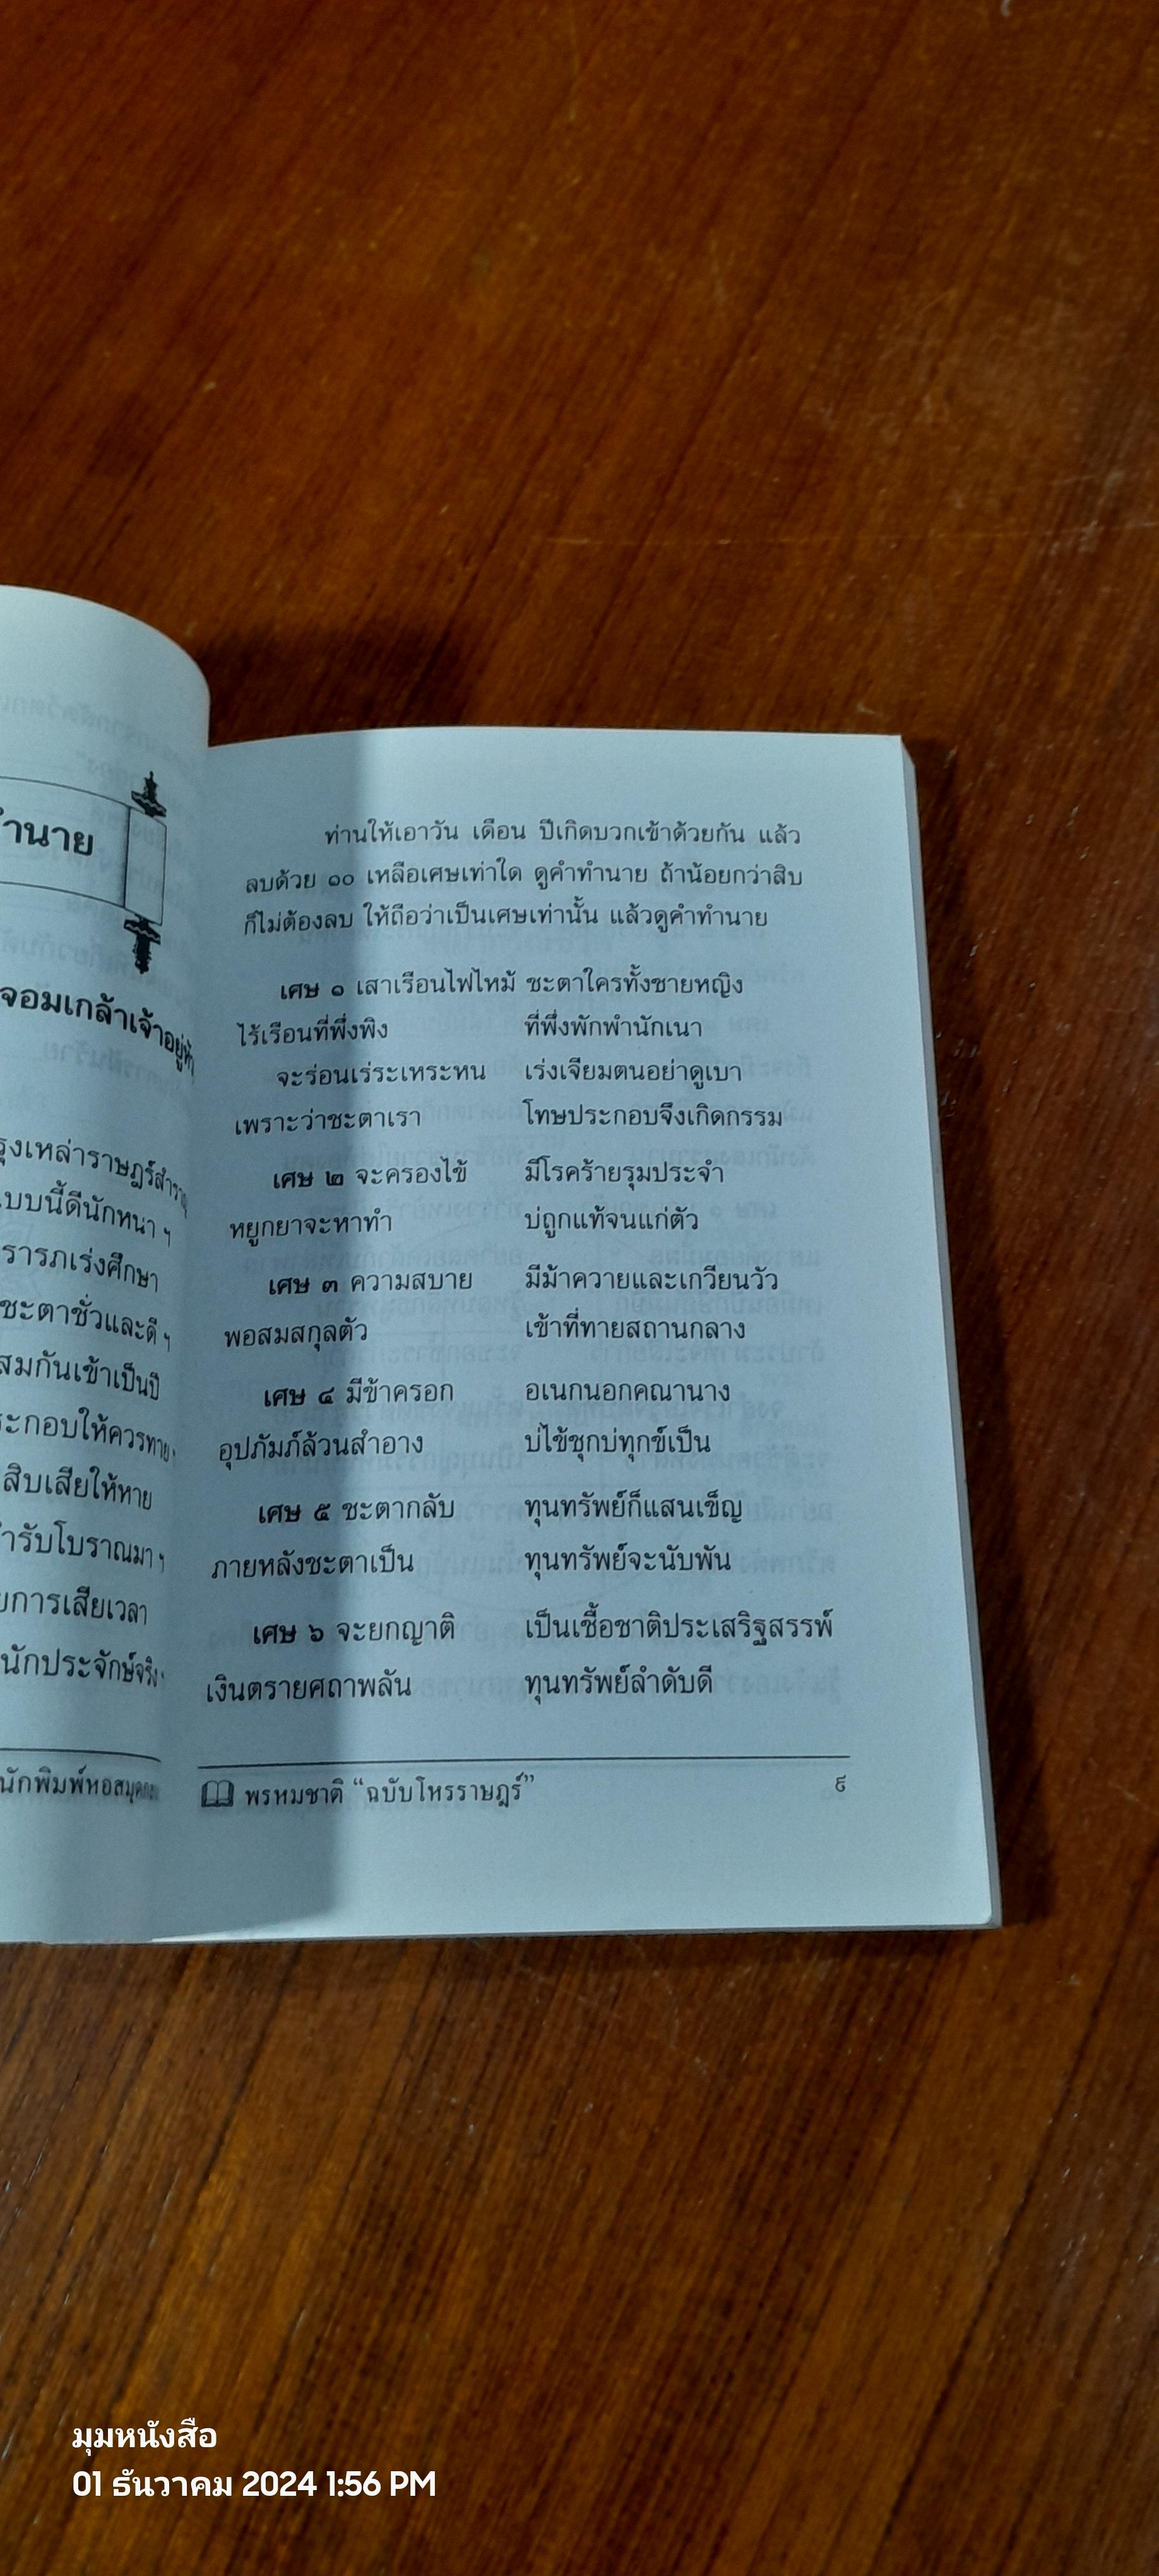 ทำนาย
จอมเกล้าเจ้าอยู่หัว
รุงเหล่าราษฎร์สำราญ
แบบนี้ดีนักหนา ฯ
รารภเร่งศึกษา
ชะตาชั่วและดี ฯ
สมกันเข้าเป็นปี
ระกอบให้ควรทาย ฯ
สิบเสียให้หาย
ตำรับโบราณมา ฯ
ยการเสียเวลา
นักประจักษ์จริง ฯ
นักพิมพ์หอสมุด
ท่านให้เอาวัน เดือน ปีเกิดบวกเข้าด้วยกัน แล้ว
ลบด้วย ๑๐ เหลือเศษเท่าใด ดูคำทำนาย ถ้าน้อยกว่าสิบ
ก็ไม่ต้องลบ ให้ถือว่าเป็นเศษเท่านั้น แล้วดูคำทำนาย
เศษ ๑ เสาเรือนไฟไหม้ ชะตาใครทั้งชายหญิง
ไร้เรือนที่พึ่งพิง ที่พึ่งพักพำนักเนา
จะร่อนเร่ระเหระหน เร่งเจียมตนอย่าดูเบา
เพราะว่าชะตาเรา โทษประกอบจึงเกิดกรรม
เศษ ๒ จะครองไข้ มีโรคร้ายรุมประจำ
หยูกยาจะหาทำ บ่ถูกแท้จนแก่ตัว
เศษ ๓ ความสบาย มีม้าควายและเกวียนวัว
พอสมสกุลตัว เข้าที่ทายสถานกลาง
เศษ ๔ มีข้าครอก อเนกนอกคณานาง
อุปภัมภ์ล้วนสำอาง บ่ไข้ชุกบ่ทุกข์เป็น
เศษ ๕ ชะตากลับ ทุนทรัพย์ก็แสนเข็ญ
ภายหลังชะตาเป็น ทุนทรัพย์จะนับพัน
เศษ ๖ จะยกญาติ เป็นเชื้อชาติประเสริฐสรรพ์
เงินตรายศถาพลัน ทุนทรัพย์ลำดับดี
พรหมชาติ “ฉบับโหรราษฎร์” ๙
มุมหนังสือ
01 ธันวาคม 2024 1:56 PM